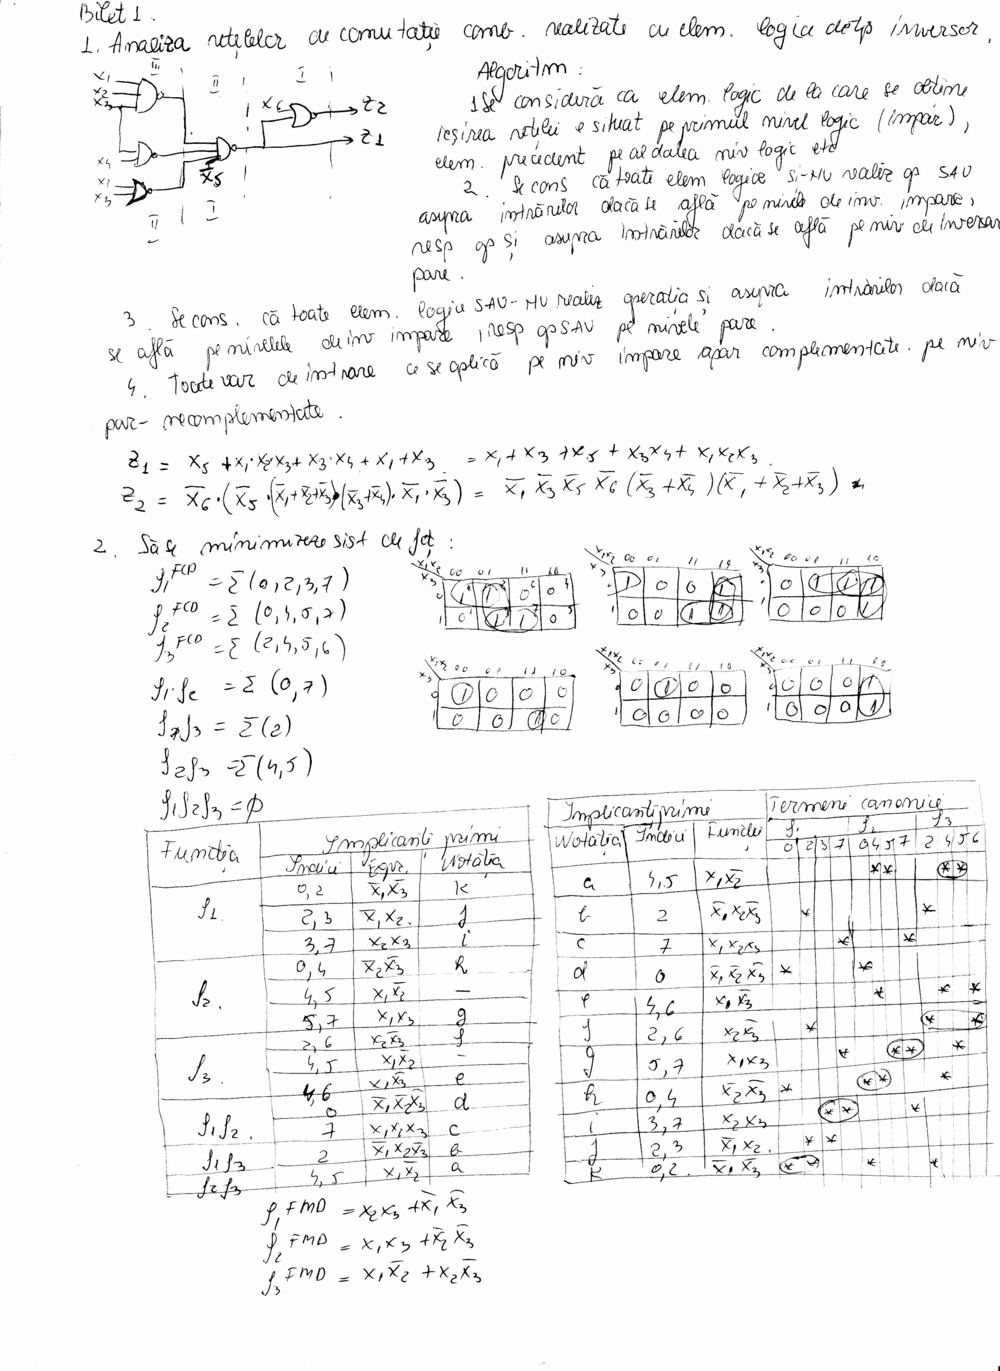 Bilet 1.
1. Analiza rețelelor de comutație comb. realizate cu elem. logice de tip inversor.
III II I
x1
x2
x3
x4
x1
x3
x̄5
x6
z2
z1
II I
Algoritm:
1 Se consideră ca elem. logic de la care se obține
ieșirea rețelei e situat pe primul nivel logic (impar),
elem. precedent pe al doilea niv logic etc
2. Se cons că toate elem logice Și-NU realiz op SAU
asupra intrărilor dacă se află pe nivele de inv. impare,
resp op și asupra intrărilor dacă se află pe niv de inversar
pare.
3. Se cons. că toate elem. logice SAU-NU realiz operația și asupra intrărilor dacă
se află pe nivelele de inv impare, resp op SAU pe nivele pare.
4. Toate var de intrare ce se aplică pe niv impare apar complementate. pe niv
par - necomplementate.
z1 = x5 + x1·x2x3 + x3·x4 + x1 + x3 = x1 + x3 + x5 + x3x4 + x1x2x3
z2 = x̄6·(x̄5·(x̄1+x̄2+x̄3)(x̄3+x̄4)·x̄1·x̄3) = x̄1 x̄3 x̄5 x̄6 (x̄3+x̄4)(x̄1+x̄2+x̄3)
2. Să se minimizeze sist de fcț:
f1 FCD = Σ(0,2,3,7)
f2 FCD = Σ(0,4,5,7)
f3 FCD = Σ(2,4,5,6)
f1·f2 = Σ(0,7)
f1f3 = Σ(2)
f2f3 = Σ(4,5)
f1f2f3 = ϕ
x1x2 00 01 11 10
x3
0 1 1 0 0
1 0 1 1 0
x1x2 00 01 11 10
x3
0 1 0 0 1
1 0 0 1 1
x1x2 00 01 11 10
x3
0 0 1 1 1
1 0 0 0 1
x1x2 00 01 11 10
x3
0 1 0 0 0
1 0 0 1 0
x1x2 00 01 11 10
x3
0 0 1 0 0
1 0 0 0 0
x1x2 00 01 11 10
x3
0 0 0 0 1
1 0 0 0 1
Funcția Implicanți primi
Indici Expr. Notația
f1 0,2 x̄1x̄3 k
2,3 x̄1x2. j
3,7 x2x3 i
f2. 0,4 x̄2x̄3 h
4,5 x1x̄2 –
5,7 x1x3 g
f3. 2,6 x2x̄3 f
4,5 x1x̄2 –
4,6 x1x̄3 e
f1f2. 0 x̄1x̄2x̄3 d
7 x1x2x3 c
f1f3 2 x̄1x2x̄3 b
f2f3 4,5 x1x̄2 a
Implicanți primi Termeni canonici
Notația Indici Funcției f1 f2 f3
0 2 3 7 0 4 5 7 2 4 5 6
a 4,5 x1x̄2 * * * *
b 2 x̄1x2x̄3 * *
c 7 x1x2x3 * *
d 0 x̄1x̄2x̄3 * *
e 4,6 x1x̄3 * * *
f 2,6 x2x̄3 * * *
g 5,7 x1x3 * * * *
h 0,4 x̄2x̄3 * * * *
i 3,7 x2x3 * * *
j 2,3 x̄1x2. * *
k 0,2. x̄1x̄3 * * * *
f1 FMD = x2x3 + x̄1 x̄3
f2 FMD = x1x3 + x̄2 x̄3
f3 FMD = x1x̄2 + x2x̄3